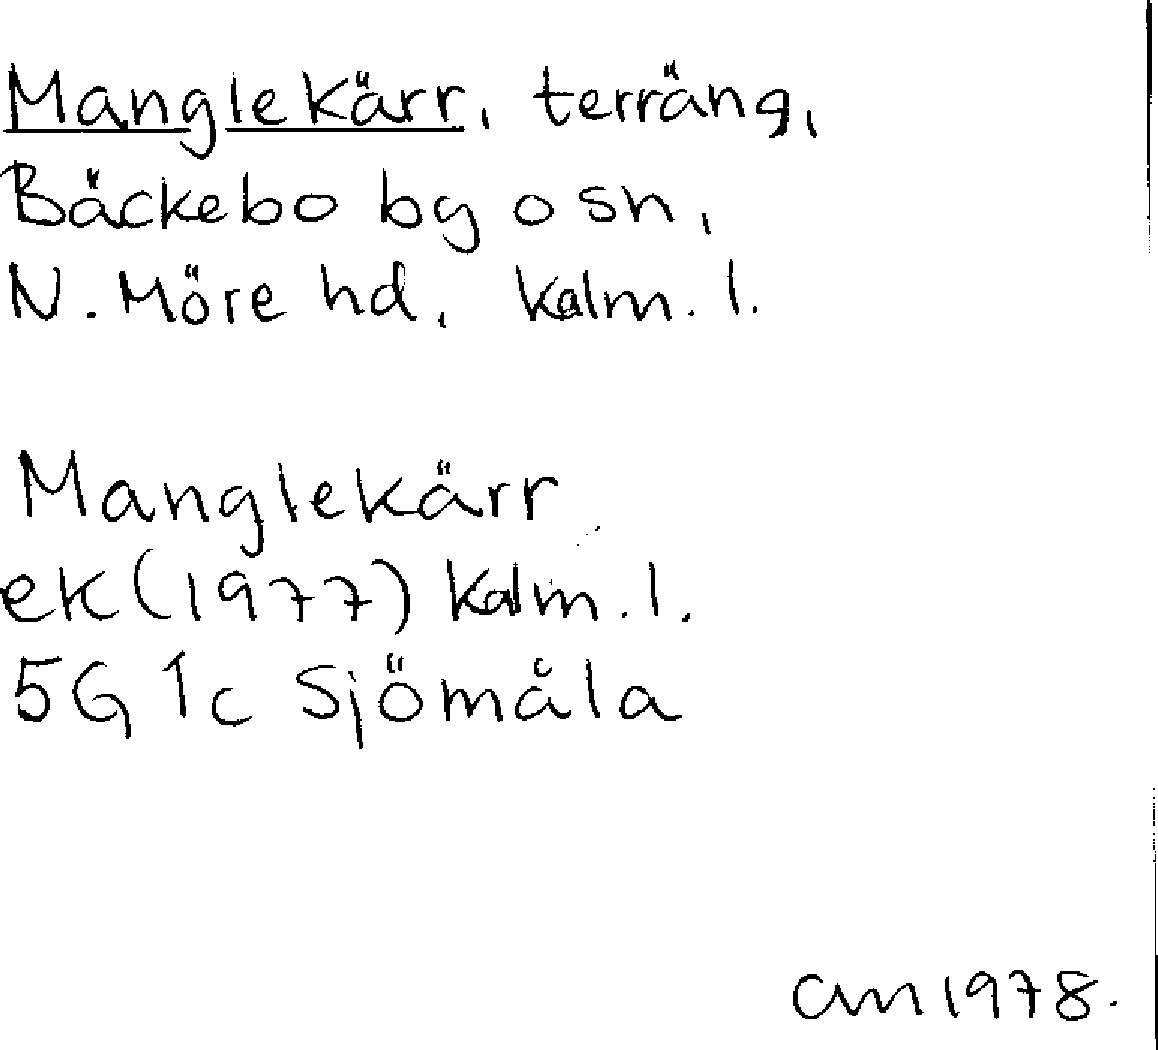 Manglekärr, terräng,
Bäckebo bg o sn,
N. Möre hd, Kalm. l.
Manglekärr
ek (1977) Kalm. l.
5G 1c Sjömåla
am 1978.